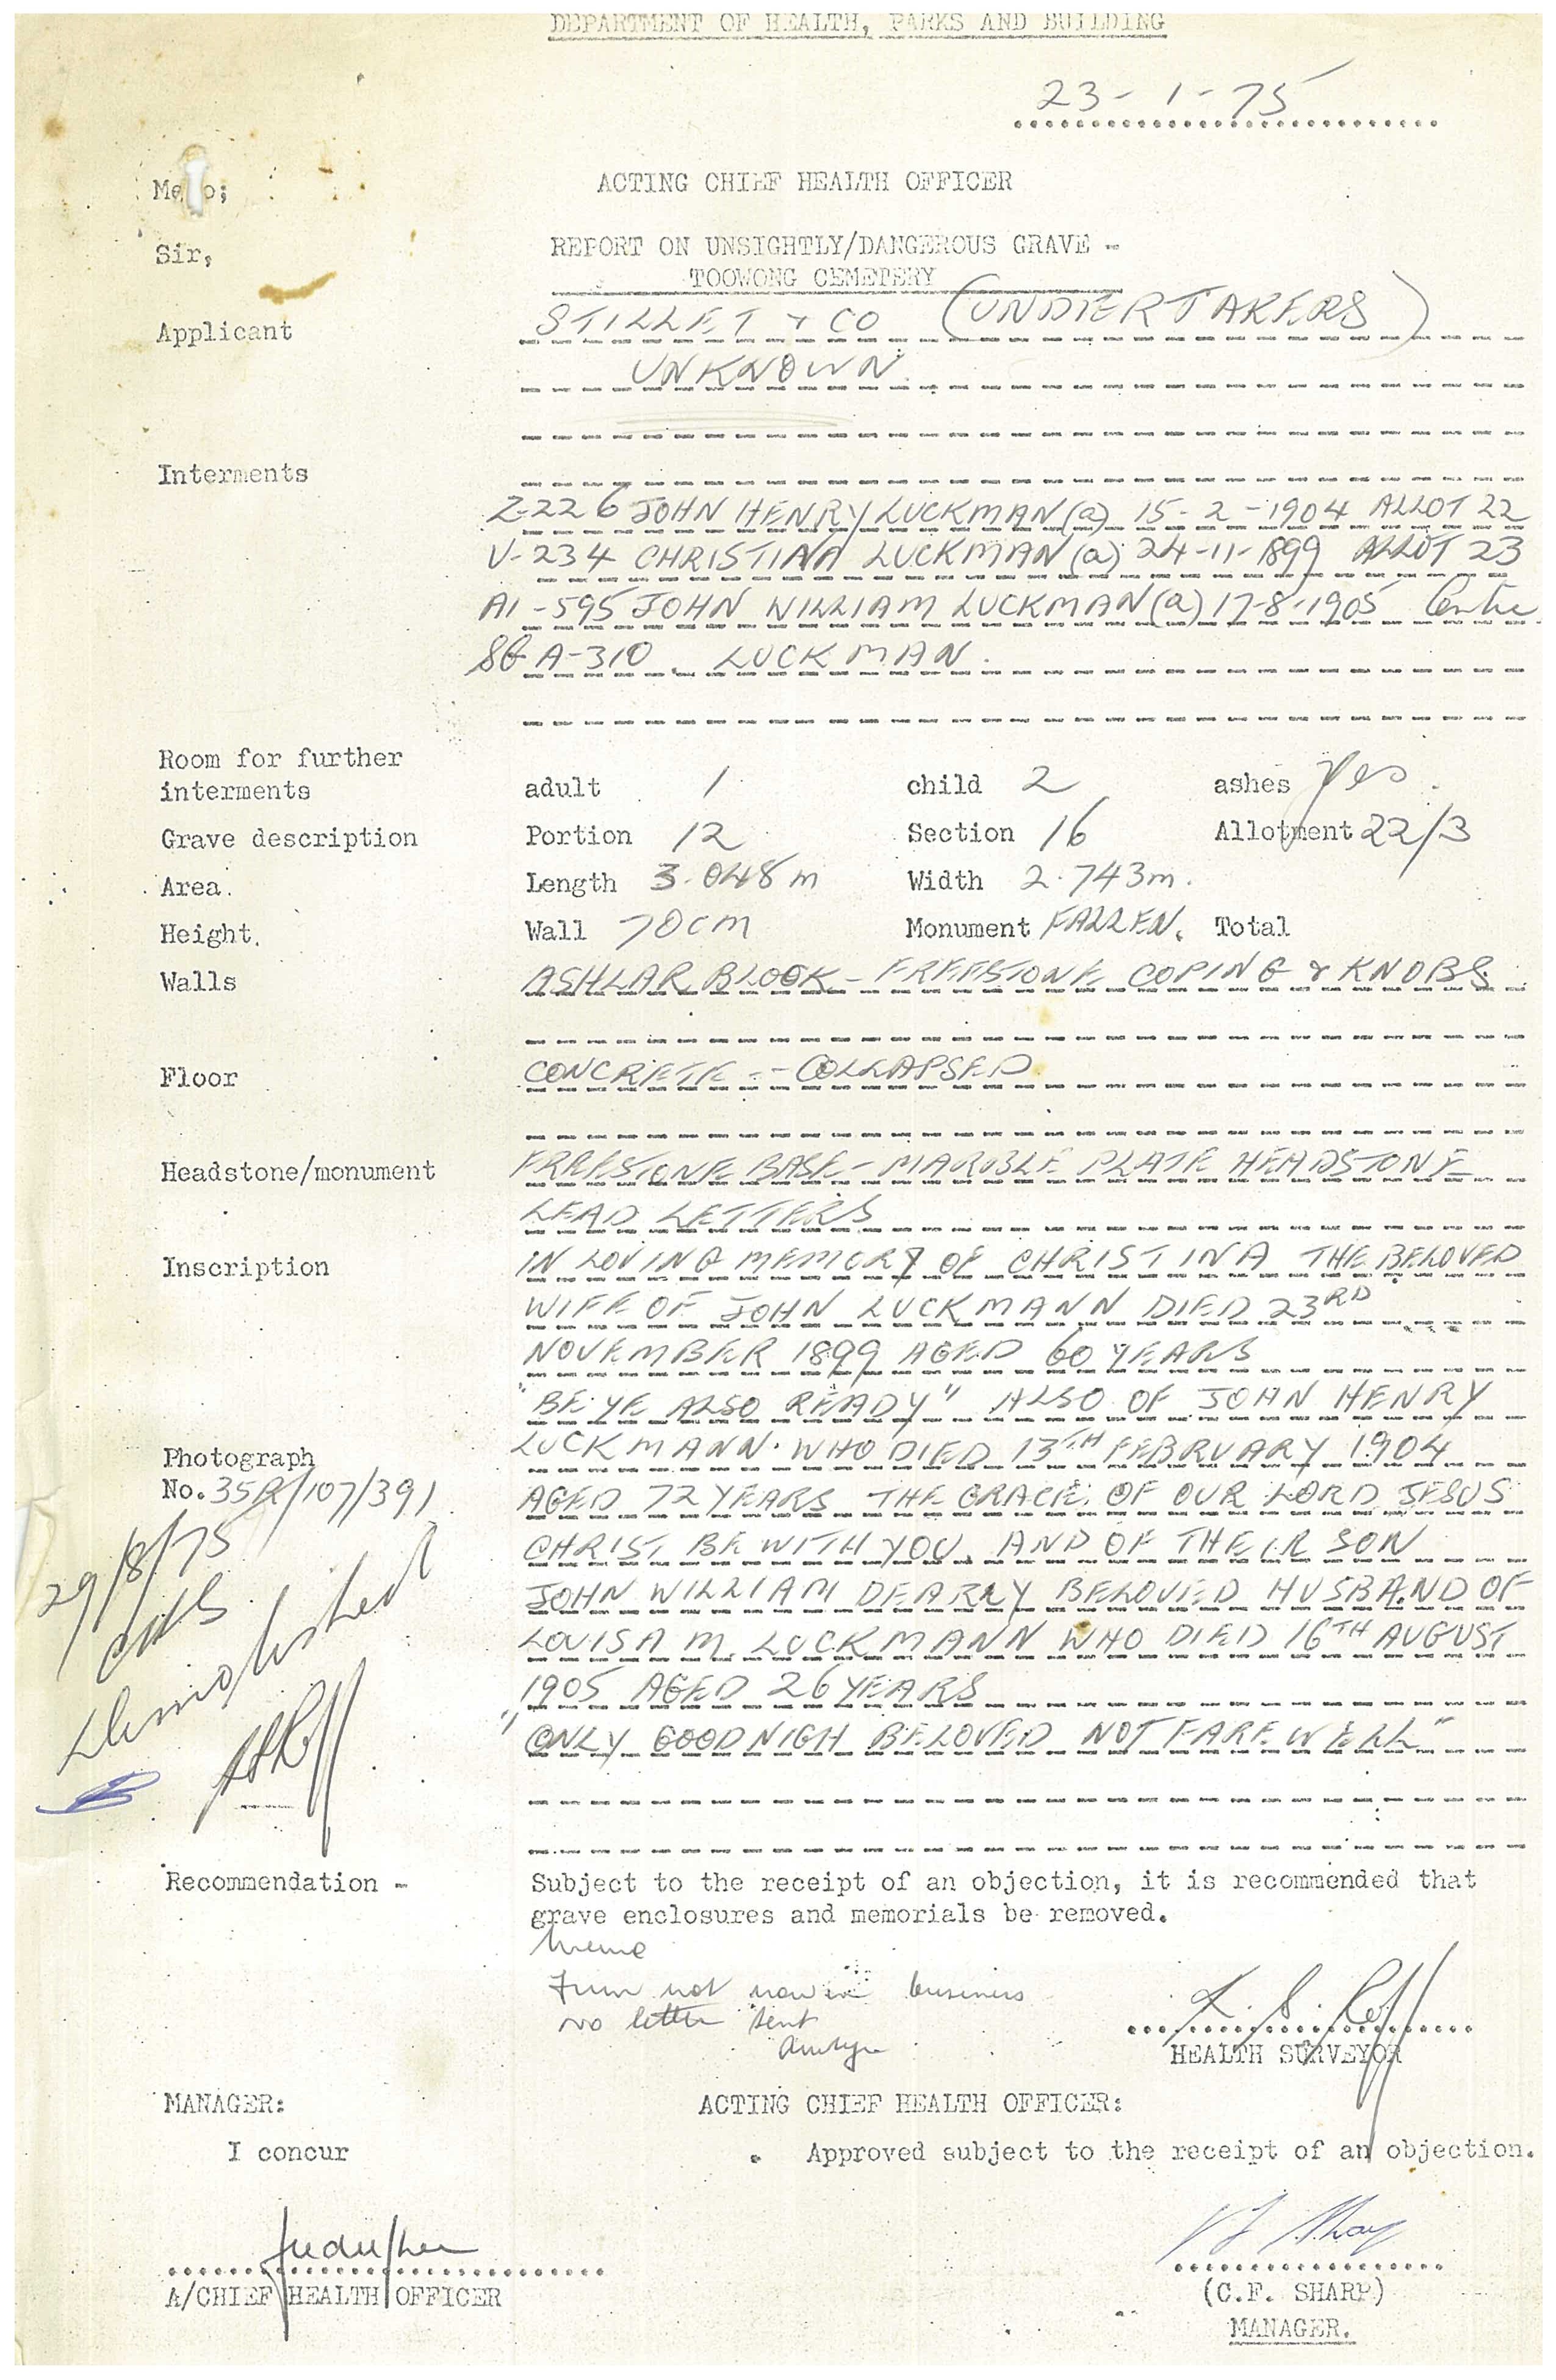 DEPARTMENT OF HEALTH, PARKS AND BUILDING
23-1-75
Memo; ACTING CHIEF HEALTH OFFICER
Sir, REPORT ON UNSIGHTLY/DANGEROUS GRAVE -
TOOWONG CEMETERY
Applicant STILLET & CO (UNDERTAKERS)
UNKNOWN
Interments
Z-226 JOHN HENRY LUCKMAN (a) 15-2-1904 ALLOT 22
V-234 CHRISTINA LUCKMAN (a) 24-11-1899 ALLOT 23
A1-595 JOHN WILLIAM LUCKMAN (a) 17-8-1905 Centre
A-310. LUCKMAN.
Room for further
interments adult 1 child 2 ashes Yes.
Grave description Portion 12 Section 16 Allotment 22/3
Area. Length 3.048m Width 2.743m.
Height. Wall 70cm Monument FALLEN. Total
Walls ASHLAR BLOCK - FREESTONE COPING & KNOBS.
Floor CONCRETE - COLLAPSED.
Headstone/monument FREESTONE BASE - MARBLE PLATE HEADSTONE
LEAD LETTERS
Inscription IN LOVING MEMORY OF CHRISTINA THE BELOVED
WIFE OF JOHN LUCKMANN DIED 23RD
NOVEMBER 1899 AGED 60 YEARS
"BE YE ALSO READY" ALSO OF JOHN HENRY
Photograph LUCKMANN. WHO DIED 13TH FEBRUARY 1904
No. 35A/107/391 AGED 72 YEARS THE GRACE OF OUR LORD JESUS
CHRIST BE WITH YOU. AND OF THEIR SON
29/8/75 JOHN WILLIAM DEARLY BELOVED HUSBAND OF
LOUISA M. LUCKMANN WHO DIED 16TH AUGUST
Demolished 1905 AGED 26 YEARS
"ONLY GOODNIGH BELOVED NOT FAREWELL"
Recommendation - Subject to the receipt of an objection, it is recommended that
grave enclosures and memorials be removed.
Firm not now in business
no letter sent
HEALTH SURVEYOR
MANAGER: ACTING CHIEF HEALTH OFFICER:
I concur Approved subject to the receipt of an objection.
A/CHIEF HEALTH OFFICER
(C.F. SHARP)
MANAGER.